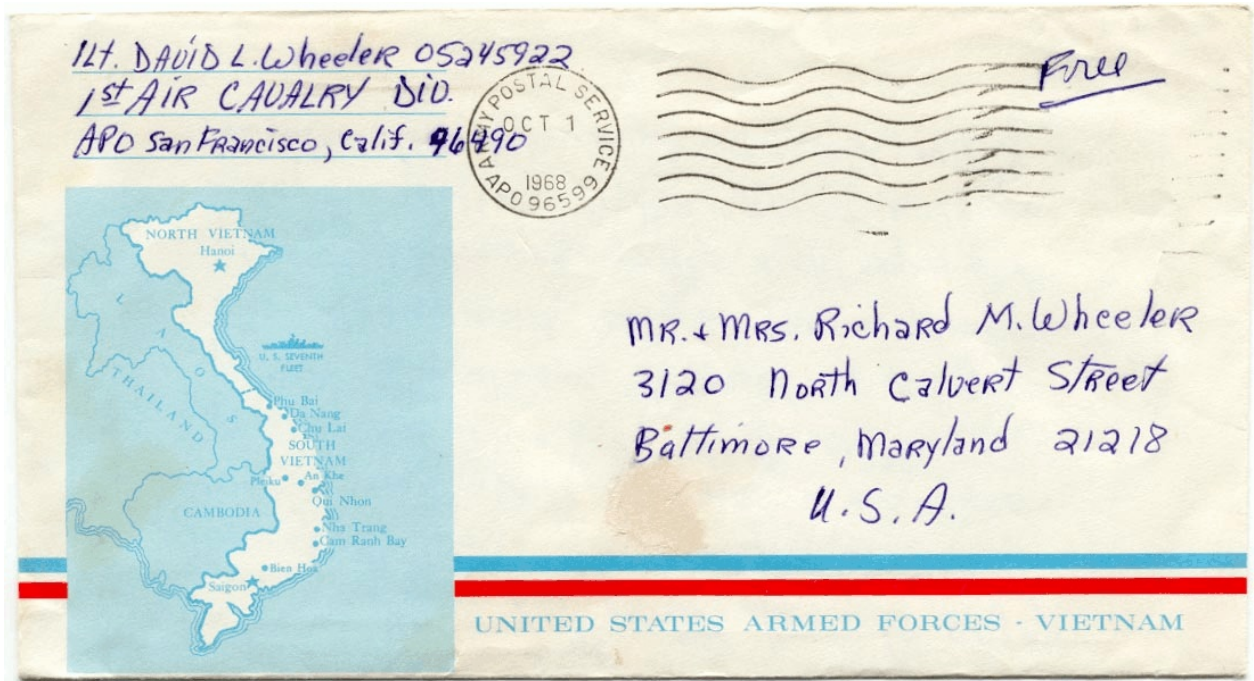 1Lt. DAVID L. Wheeler 05245922
1st AIR CAVALRY DIV.
APO San Francisco, Calif. 96490
ARMY POSTAL SERVICE
OCT 1
1968
APO 96599
Free
NORTH VIETNAM
Hanoi
LAOS
U. S. SEVENTH
FLEET
THAILAND
Phu Bai
Da Nang
Chu Lai
SOUTH
VIETNAM
Pleiku
An Khe
Qui Nhon
CAMBODIA
Nha Trang
Cam Ranh Bay
Bien Hoa
Saigon
MR. + MRS. Richard M. Wheeler
3120 North Calvert Street
Baltimore, Maryland 21218
U.S.A.
UNITED STATES ARMED FORCES - VIETNAM